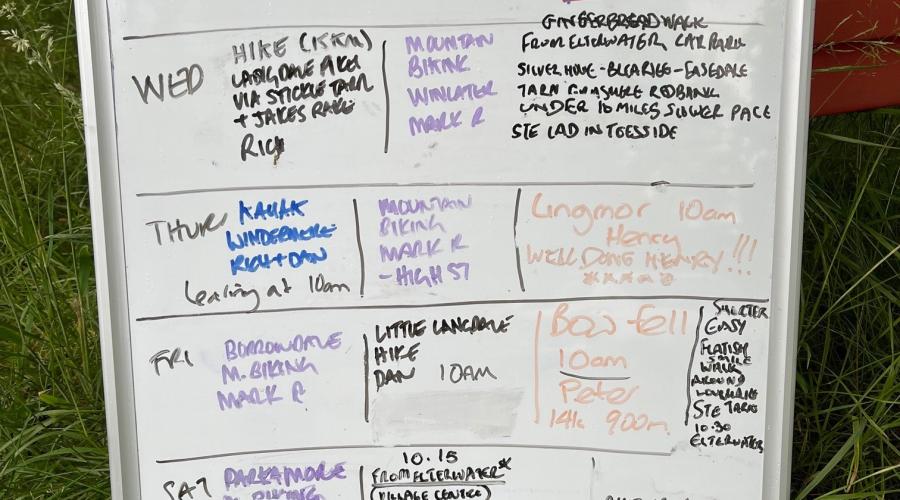 WED
HIKE (15KM)
LANGDALE PIKES
VIA STICKLE TARN
+ JAKES RAKE
RICH
MOUNTAIN
BIKING
WINLATER
MARK R
GINGERBREAD WALK
FROM ELTERWATER CAR PARK
SILVER HOWE - BLEARIES - EASEDALE
TARN GRASMERE REDBANK
UNDER 10 MILES SLOWER PACE
STE LAD IN TEESSIDE
THUR
KAYAK
WINDERMERE
RICH + DAN
Leaving at 10am
MOUNTAIN
BIKING
MARK R
- HIGH ST
Lingmor 10am
Henry
WELL DONE HENRY!!!
*****
FRI
BORROWDALE
M. BIKING
MARK R
LITTLE LANGDALE
HIKE
DAN 10AM
Bow fell
10am
Peter
14k 900m
SHORTER
EASY
FLATISH
WALK
AROUND
LOUGHRIGG
STE TARN
10.30
ELTERWATER
SAT
PARKAMOOR
10.15
FROM ELTERWATER*
(VILLAGE CENTRE)